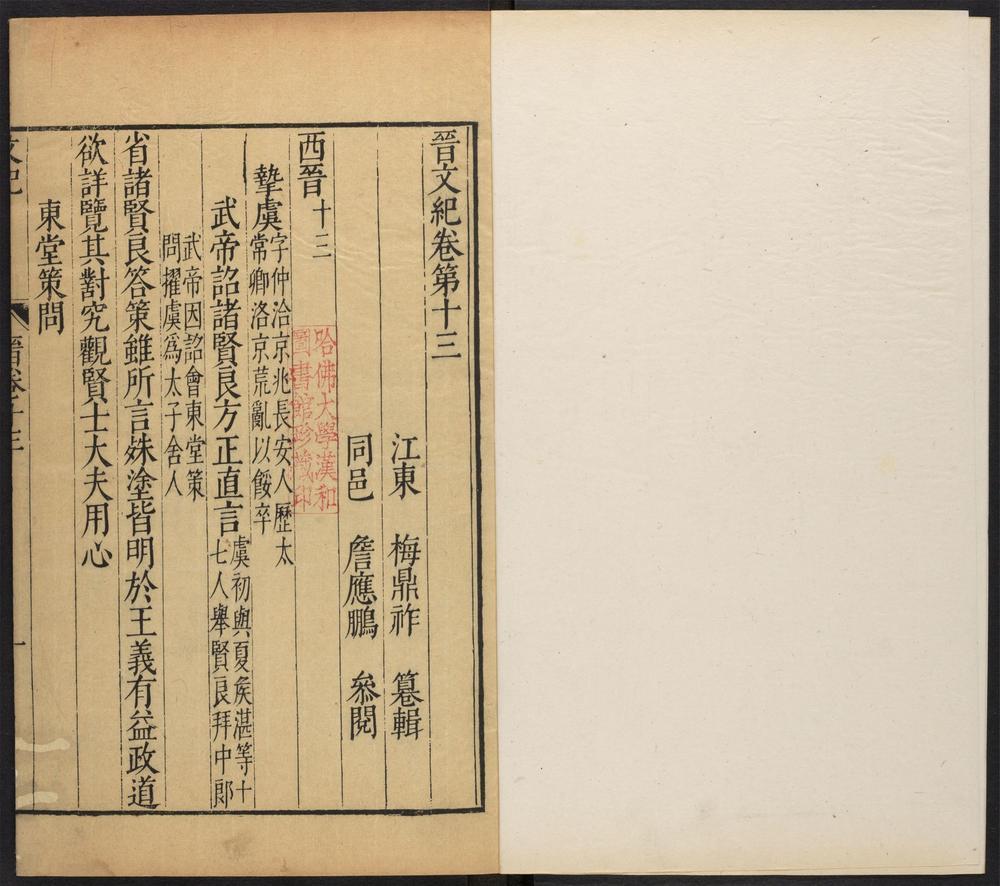 晉文紀卷第十三
江東　梅鼎祚　纂輯
同邑　詹應鵬　叅閱
西晉十三
摯虞字仲洽京兆長安人歷太
常卿洛京荒亂以餒卒
武帝詔諸賢良方正直言虞初與夏侯湛等十
七人舉賢良拜中郎
武帝因詔會東堂策
問擢虞爲太子舍人
省諸賢良答策雖所言殊塗皆明於王義有益政道
欲詳覽其對究觀賢士大夫用心
東堂策問
文紀
晉卷十三
一
哈佛大學漢和
圖書館珍藏印